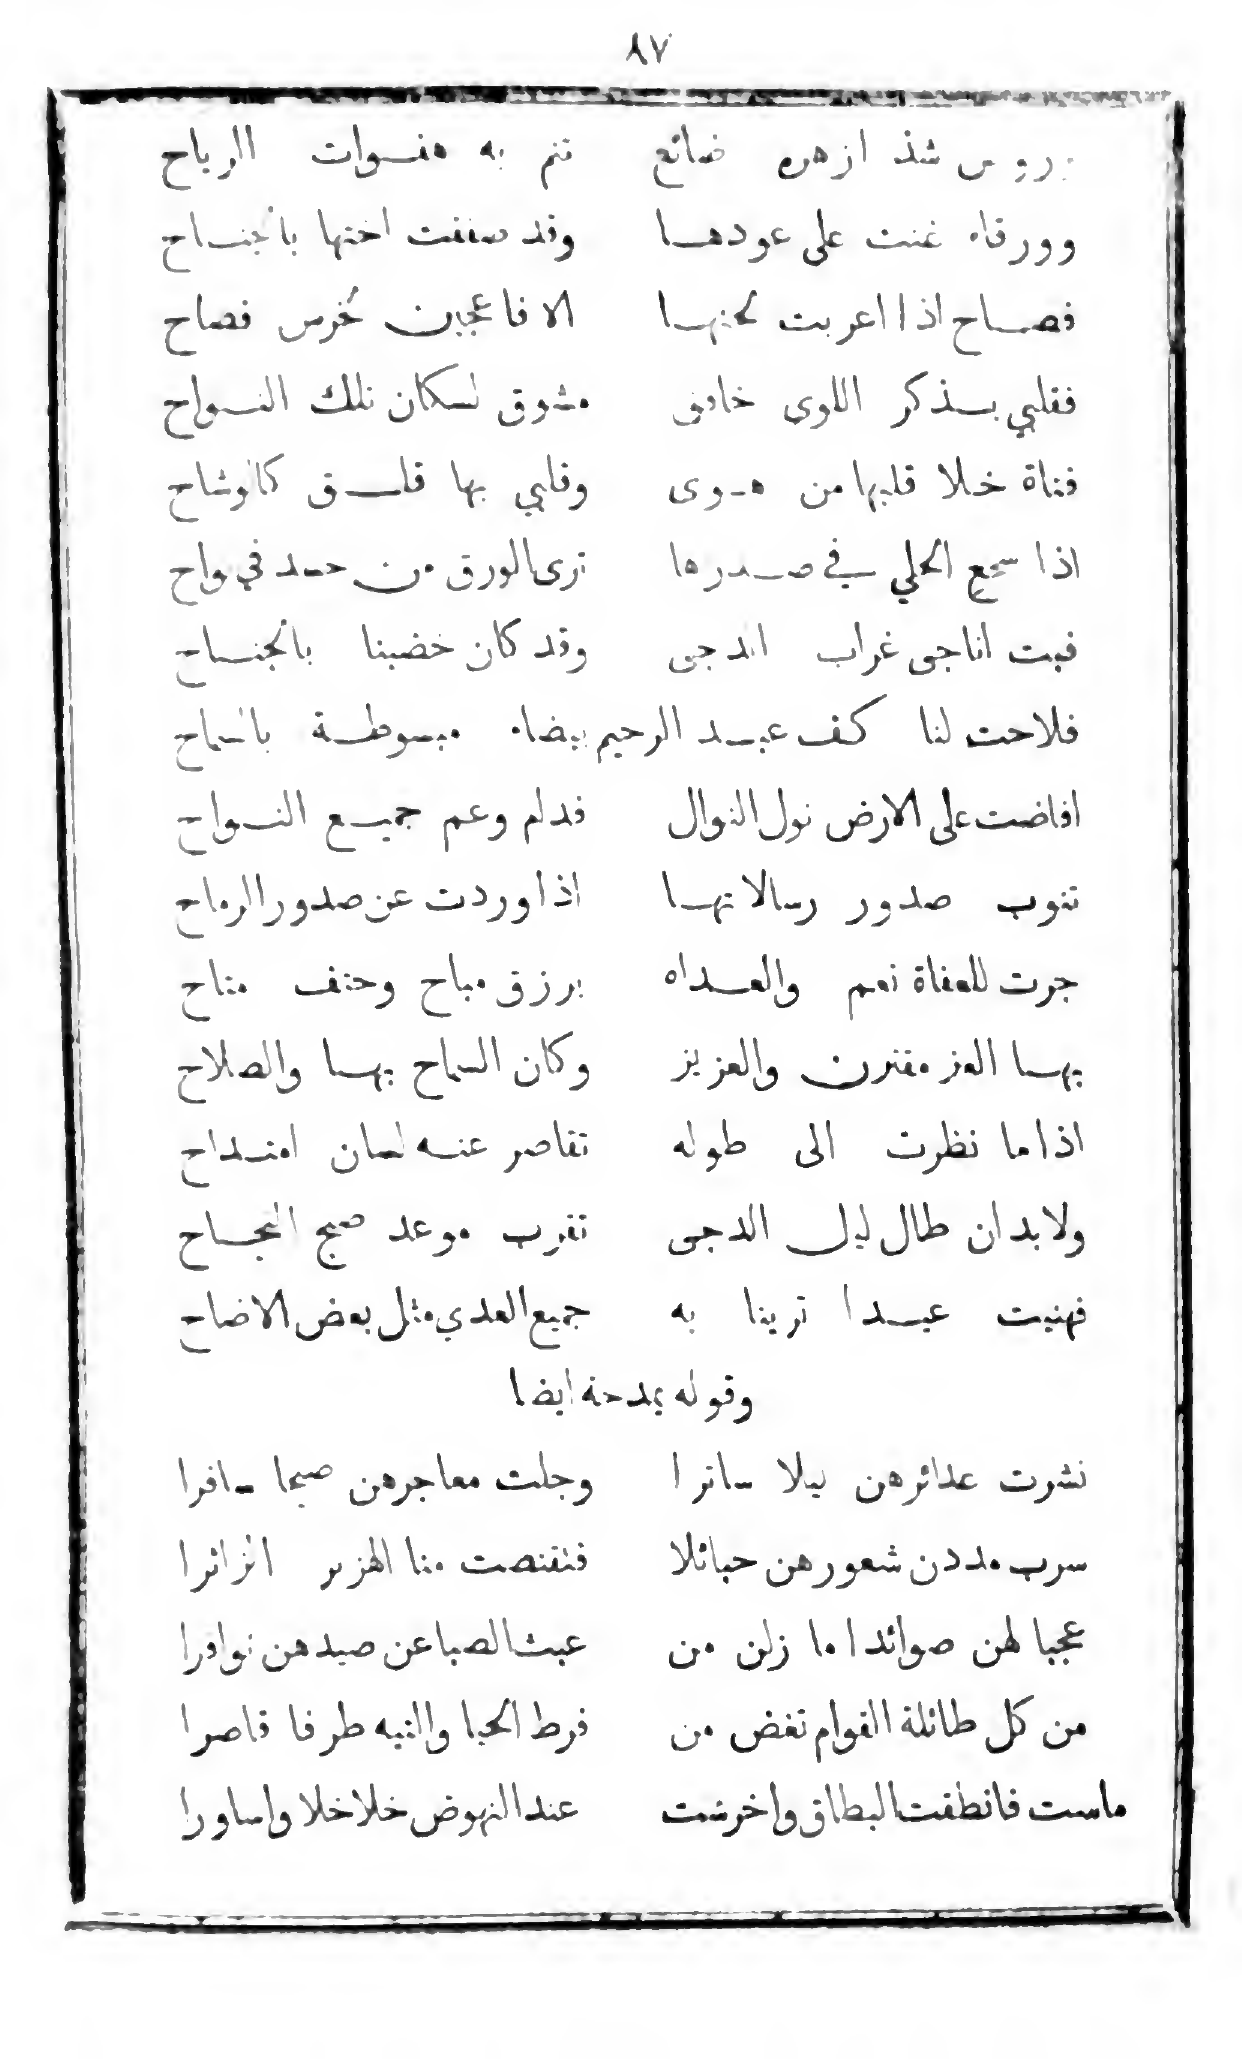 ٨٧
شذ ازهره ضائع تنم به هفوات الرياح
وورقاء غنت على عودها وقد صفقت اختها بالجناح
فصاح اذا اعربت لحنها الا فاعجبن خرس فصاح
فقلبي بذكر اللوى خافق مشوق لسكان تلك النواح
فتاة خلا قلبها من هوى وقلبي بها قلق كالوشاح
اذا سجع الحلي في صدرها ترى الورق من حسد في نواح
فبت اناجى غراب الدجى وقد كان خضبنا بالجناح
فلاحت لنا كف عبد الرحيم بيضاء مبسوطة بالسماح
افاضت على الارض نول النوال فدام وعم جميع النواح
تنوب صدور رسالاتها اذا وردت عن صدور الرماح
جرت للعفاة نعم والعداه برزق مباح وحتف متاح
بها العز مقترن والعزيز وكان السماح بها والصلاح
اذا ما نظرت الى طوله تقاصر عنه لسان امتداح
ولا بد ان طال ليل الدجى تقرب موعد صبح النجاح
فهنيت عيدا ترينا به جميع العدي مثل بعض الاضاح
وقوله يمدحه ايضا
نشرت غدائرهن ليلا ساترا وجلت معاجرهن صبحا سافرا
سرب مددن شعورهن حبائلا فتقنصت منا الهزبر الزائرا
عجبا لهن صوائدا ما زلن من عبث الصبا عن صيدهن نوافرا
من كل طائلة القوام تغض من فرط الحيا والتيه طرفا قاصرا
ماست فانطقت البطاق واخرست عند النهوض خلاخلا واساورا